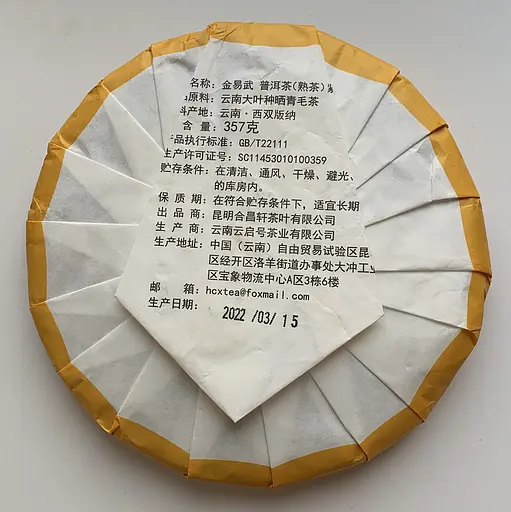 名称：金易武 普洱茶(熟茶)
原料：云南大叶种晒青毛茶
产地：云南·西双版纳
含 量：357克
产品执行标准：GB/T22111
生产许可证号：SC11453010100359
贮存条件：在清洁、通风、干燥、避光、
的库房内。
保 质 期：在符合贮存条件下，适宜长期
出 品 商：昆明合昌轩茶叶有限公司
生 产 商：云南云启号茶业有限公司
生产地址：中国（云南）自由贸易试验区昆
区经开区洛羊街道办事处大冲工业
区宝象物流中心A区3栋6楼
邮 箱：hcxtea@foxmail.com
生产日期：2022/03/15